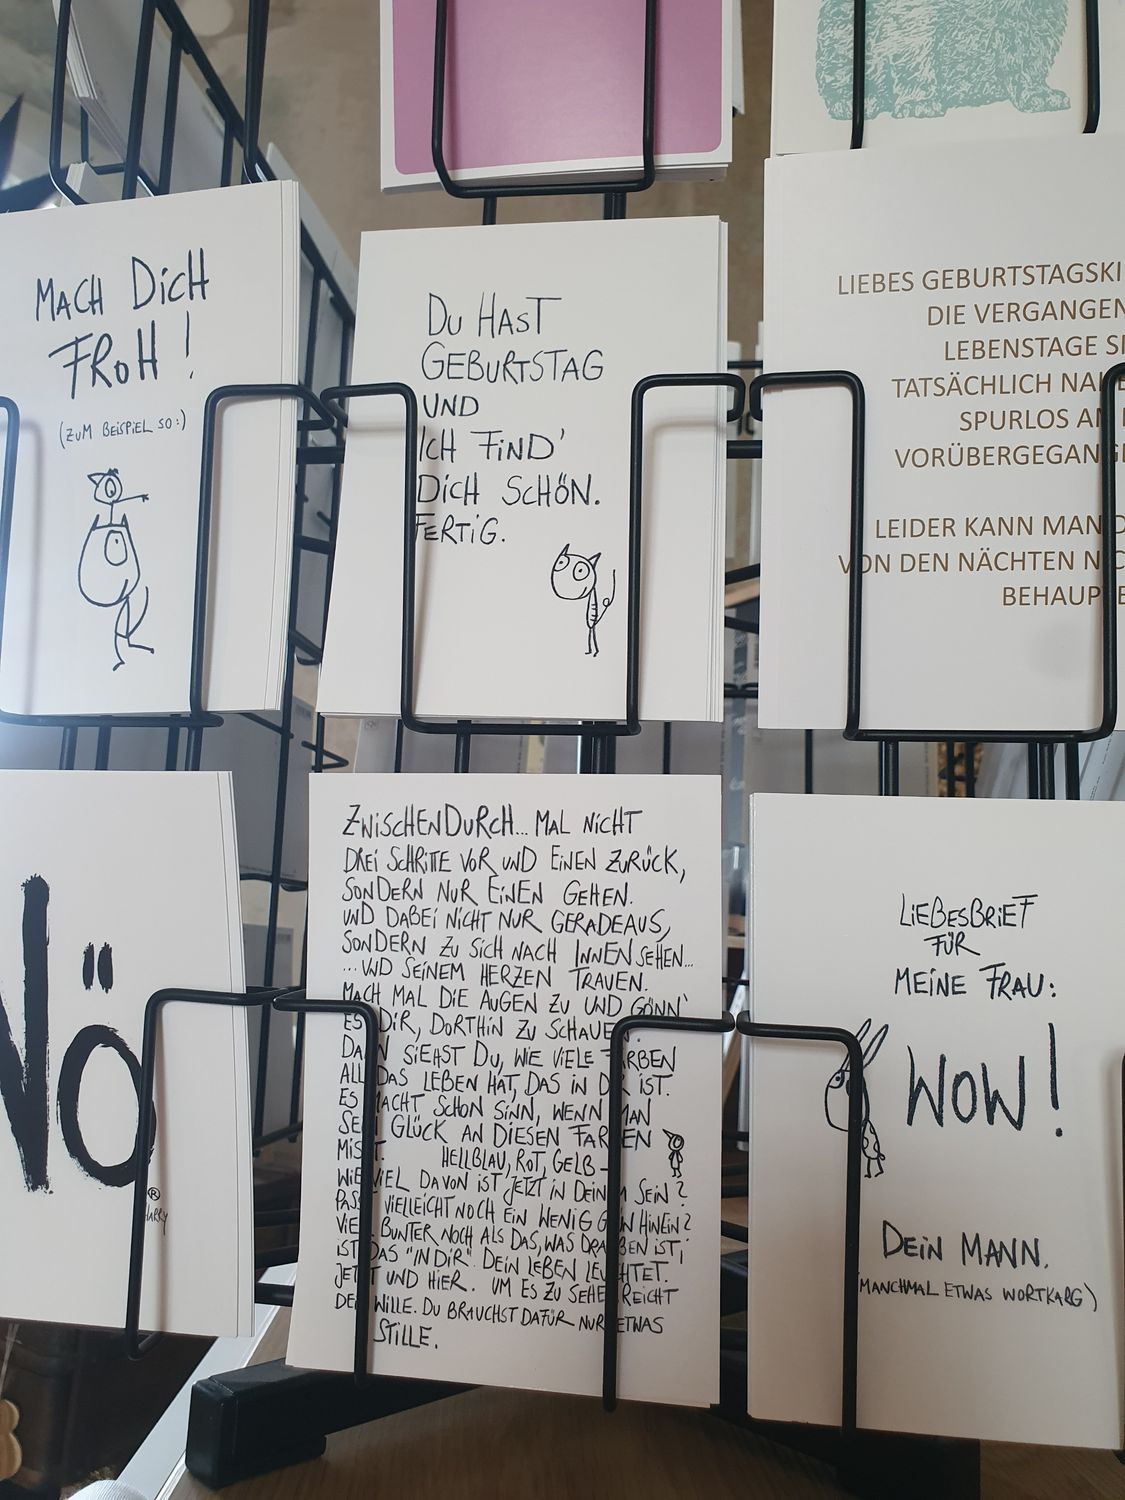 MACH DICH
FROH!
(ZUM BEISPIEL SO:)
DU HAST
GEBURTSTAG
UND
ICH FIND'
DICH SCHÖN.
FERTIG.
LIEBES GEBURTSTAGSKI
DIE VERGANGEN
LEBENSTAGE SI
TATSÄCHLICH NA
SPURLOS AN
VORÜBERGEGANGE
LEIDER KANN MAN D
VON DEN NÄCHTEN NIC
BEHAUPTE
NÖ
®
HARRY
ZWISCHENDURCH... MAL NICHT
DREI SCHRITTE VOR UND EINEN ZURÜCK,
SONDERN NUR EINEN GEHEN.
UND DABEI NICHT NUR GERADEAUS,
SONDERN ZU SICH NACH INNEN SEHEN...
...UND SEINEM HERZEN TRAUEN.
MACH MAL DIE AUGEN ZU UND GÖNN'
ES DIR, DORTHIN ZU SCHAUEN.
DANN SIEHST DU, WIE VIELE FARBEN
ALL DAS LEBEN HAT, DAS IN DIR IST.
ES MACHT SCHON SINN, WENN MAN
SEIN GLÜCK AN DIESEN FARBEN
MISST. HELLBLAU, ROT, GELB –
WIEVIEL DAVON IST JETZT IN DEINEM SEIN?
PASST VIELLEICHT NOCH EIN WENIG GRÜN HINEIN?
VIEL BUNTER NOCH ALS DAS, WAS DRAUßEN IST,
IST DAS "IN DIR". DEIN LEBEN LEUCHTET.
JETZT UND HIER. UM ES ZU SEHEN REICHT
DEIN WILLE. DU BRAUCHST DAFÜR NUR ETWAS
STILLE.
LIEBESBRIEF
FÜR
MEINE FRAU:
WOW!
DEIN MANN.
(MANCHMAL ETWAS WORTKARG)